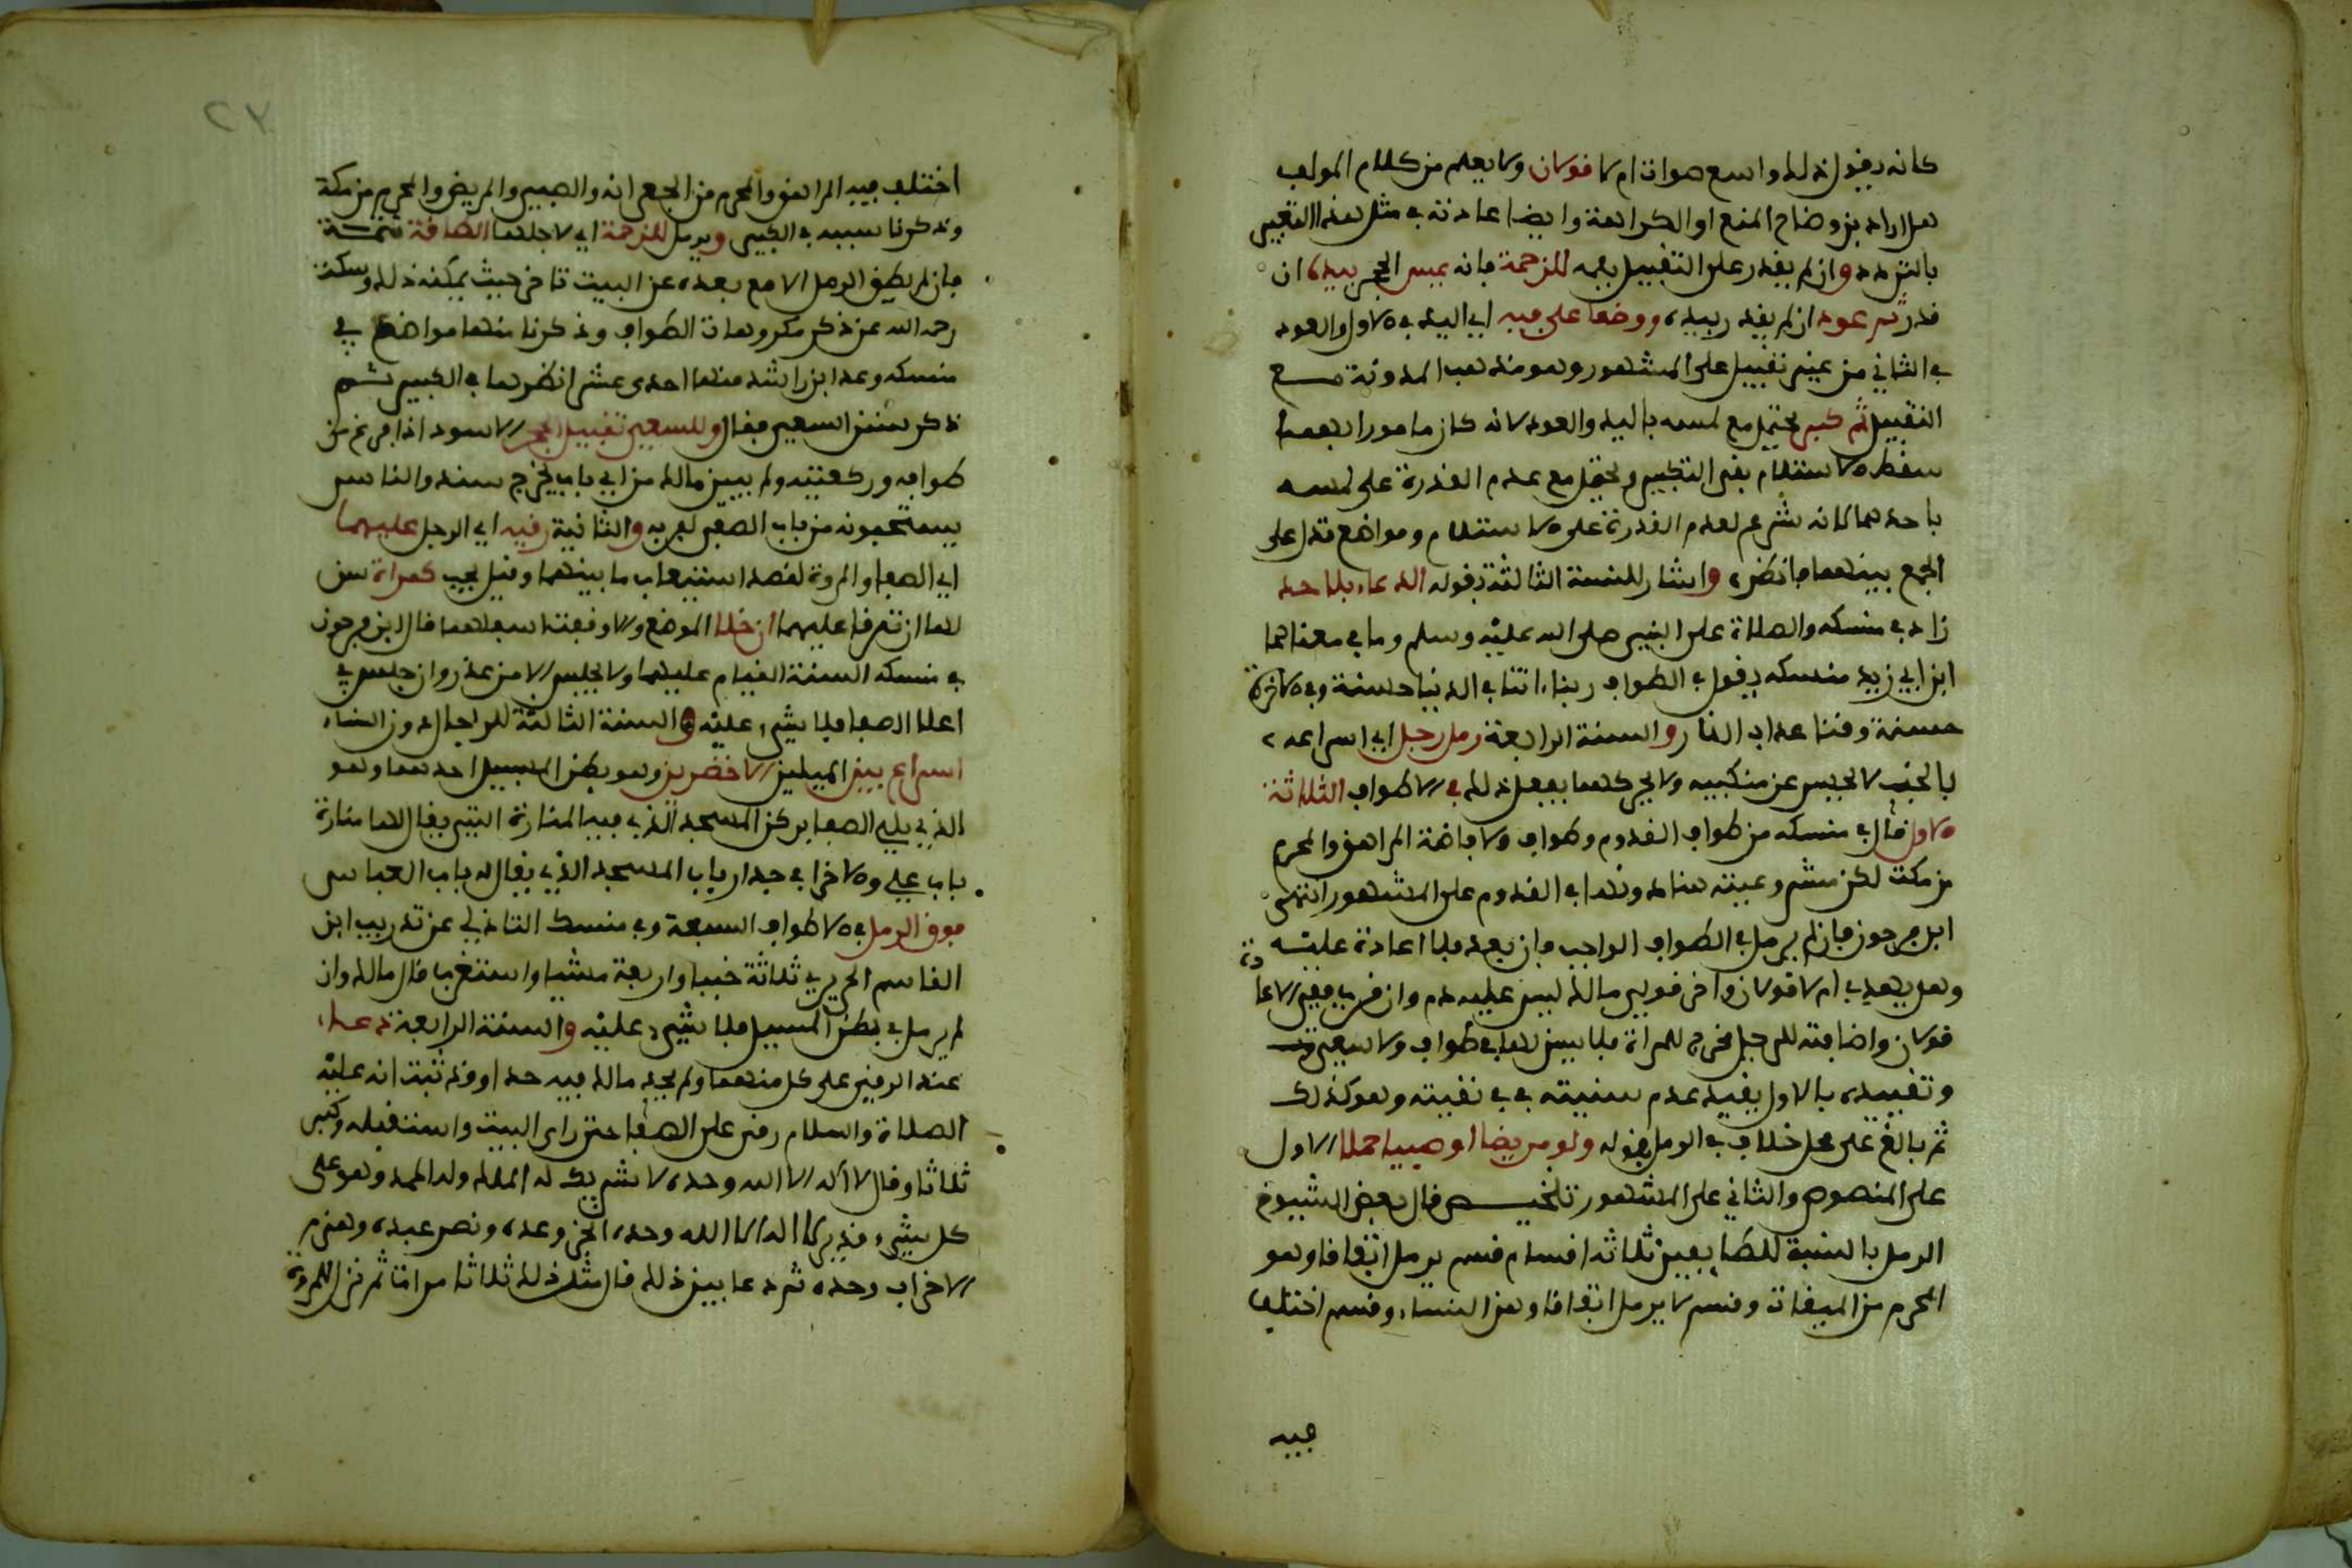 كانه يقول ذلك واسع صوات ام لا قولان ولا يعلم من كلام المولف
هل اراد بن وضاح المنع او الكراهة وايضا عادته في مثل هذا التعبير
بالتردد وان لم يقدر على التقبيل بفمه للزحمة فانه يمس الحجر بيده ان
قدر ثم عود ان لم يقدر بيده ووضعا على فيه اي اليد في الاول والعود
في الثاني من غير تقبيل على المشهور وهو مذهب المدونة مع
التقبيل ثم كبر يحتمل مع لمسه باليد والعود لانه كان مامورا بهما
سقط الاستلام بقي التكبير ويحتمل مع عدم القدرة على لمسه
باحدهما لانه شرع لعدم القدرة على الاستلام ومواضع تدل على
الجمع بينهما فانظره واشار للسنة الثالثة بقوله الدعاء بلا حد
زاد في منسكه والصلاة على النبي صلى الله عليه وسلم وما في معناهما
ابن ابي زيد منسكه يقول في الطواف ربنا اتنا في الدنيا حسنة وفي الاخرة
حسنة وقنا عذاب النار والسنة الرابعة رمل رجل اي اسراعه
بالخبب لا يحبس عن منكبيه ولا يحركهما يفعل ذلك في الاطواف الثلاثة
الاول قال في منسكه من طواف القدوم وطواف والافاضة المراهق والمحرم
من مكة لكن مشروعيته هنا دونها في القدوم على المشهور انتهى
ابن فرحون فان لم يرمل في الطواف الواجب وان بعد فلا اعادة عليه
وهل يهدي ام لا قولان واخر قولي مالك ليس عليه دم وان قرب ففي الاعادة
قولان واضافته للرجل مخرج للمراة فلا يسن لها في طواف ولا سعي
وتقييده بالاول يفيد عدم سنيته في بقيته وهو كذلك
ثم بالغ على محل خلاف في الرمل بقوله ولو مريضا او صبيا حملا الاول
على المنصوص والثاني على المشهور تلخيص قال بعض الشيوخ
الرمل بالنسبة للطايفين ثلاثة اقسام قسم يرمل اتفاقا وهو
المحرم من الميقات وقسم لا يرمل اتفاقا وهن النساء وقسم اختلف
فيه
٢٧
اختلف فيه المراهق والمحرم من الجعرانة والصبي والمريض والمحرم من مكة
وذكرنا سببه في الكبير ويرمل للزحمة اي لاجلها الطاقة تتمة
فان لم يطق الرمل الا مع بعده عن البيت تاخر حيث يمكنه ذلك وسكت
رحمه الله عن ذكر مكروهات الطواف وذكرنا منها مواضع في
منسكه وعد ابن راشد منها احدى عشر انظرها في الكبير ثم
ذكر سنن السعي فقال وللسعي تقبيل الحجر الاسود اذا فرغ من
طوافه وركعتيه ولم يبين مالك من اي باب يخرج سند والناس
يستحبونه من باب الصفى لقربه والثانية رقيه اي الرجل عليهما
اي الصفا والمروة لقصد استيعاب ما بينهما وقيل يجب كمراة سن
لها ان ترقا عليهما ان خلا الموضع والا وقفت اسفلهما قال ابن فرحون
في منسكه السنة القيام عليهما ولا يجلس الا من عذر وان جلس في
اعلا الصفا فلا شيء عليه والسنة الثالثة للرجال دون النساء
اسراع بين الميلين الاخضرين وهو بطن المسيل احدهما وهو
الذي يلي الصفا بركن المسجد الذي فيه المنارة التي يقال لها منارة
باب علي والاخر في جدار باب المسجد الذي يقال له باب العباس
فوق الرمل في الاطواف السبعة وفي منسك التاذلي عن تدريب ابن
القاسم الحريري ثلاثة خببا واربعة مشيا واستغربه قال مالك وان
لم يرمل في بطن المسيل فلا شيء عليه والسنة الرابعة دعاء
عند الرقي على كل منهما ولم يحد مالك فيه حدا وقد ثبت انه عليه
الصلاة والسلام رقى على الصفا حتى راى البيت واستقبله وكبر
ثلاثا وقال لا اله الا الله وحده لا شريك له الملك وله الحمد وهو على
كل شيء قدير لا اله الا الله وحده انجز وعده ونصر عبده وهزم
الاحزاب وحده ثم دعا بين ذلك قال مثل ذلك ثلاثا مرات ثم نزل للمروة